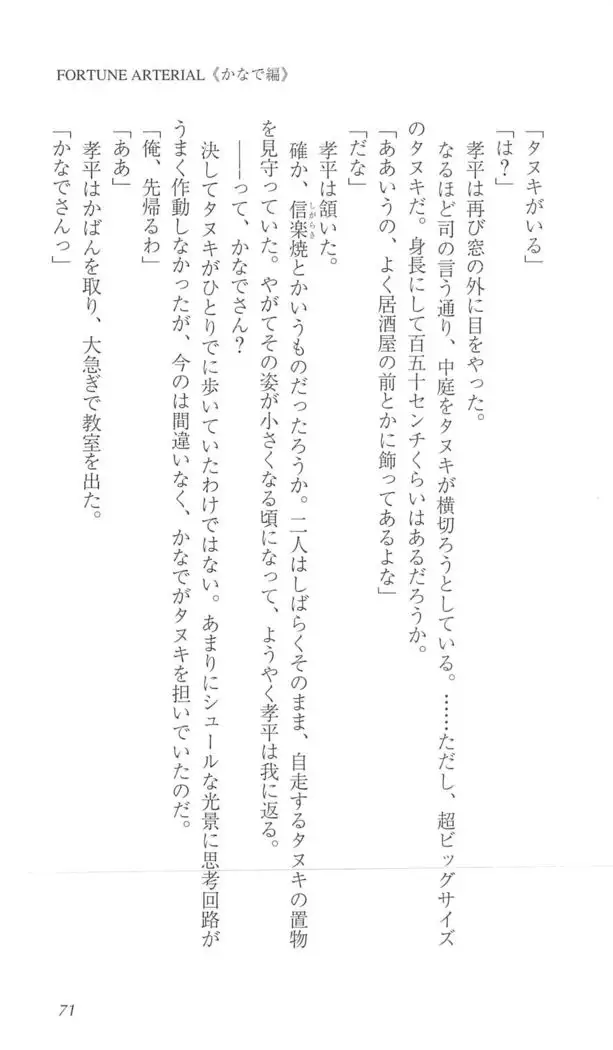 FORTUNE ARTERIAL《かなで編》
「タヌキがいる」
「は？」
孝平は再び窓の外に目をやった。
なるほど司の言う通り、中庭をタヌキが横切ろうとしている。……ただし、超ビッグサイズ
のタヌキだ。身長にして百五十センチくらいはあるだろうか。
「ああいうの、よく居酒屋の前とかに飾ってあるよな」
「だな」
孝平は頷いた。
確か、信楽焼とかいうものだったろうか。二人はしばらくそのまま、自走するタヌキの置物
しがらき
を見守っていた。やがてその姿が小さくなる頃になって、ようやく孝平は我に返る。
――って、かなでさん？
決してタヌキがひとりでに歩いていたわけではない。あまりにシュールな光景に思考回路が
うまく作動しなかったが、今のは間違いなく、かなでがタヌキを担いでいたのだ。
「俺、先帰るわ」
「ああ」
孝平はかばんを取り、大急ぎで教室を出た。
「かなでさんっ」
71